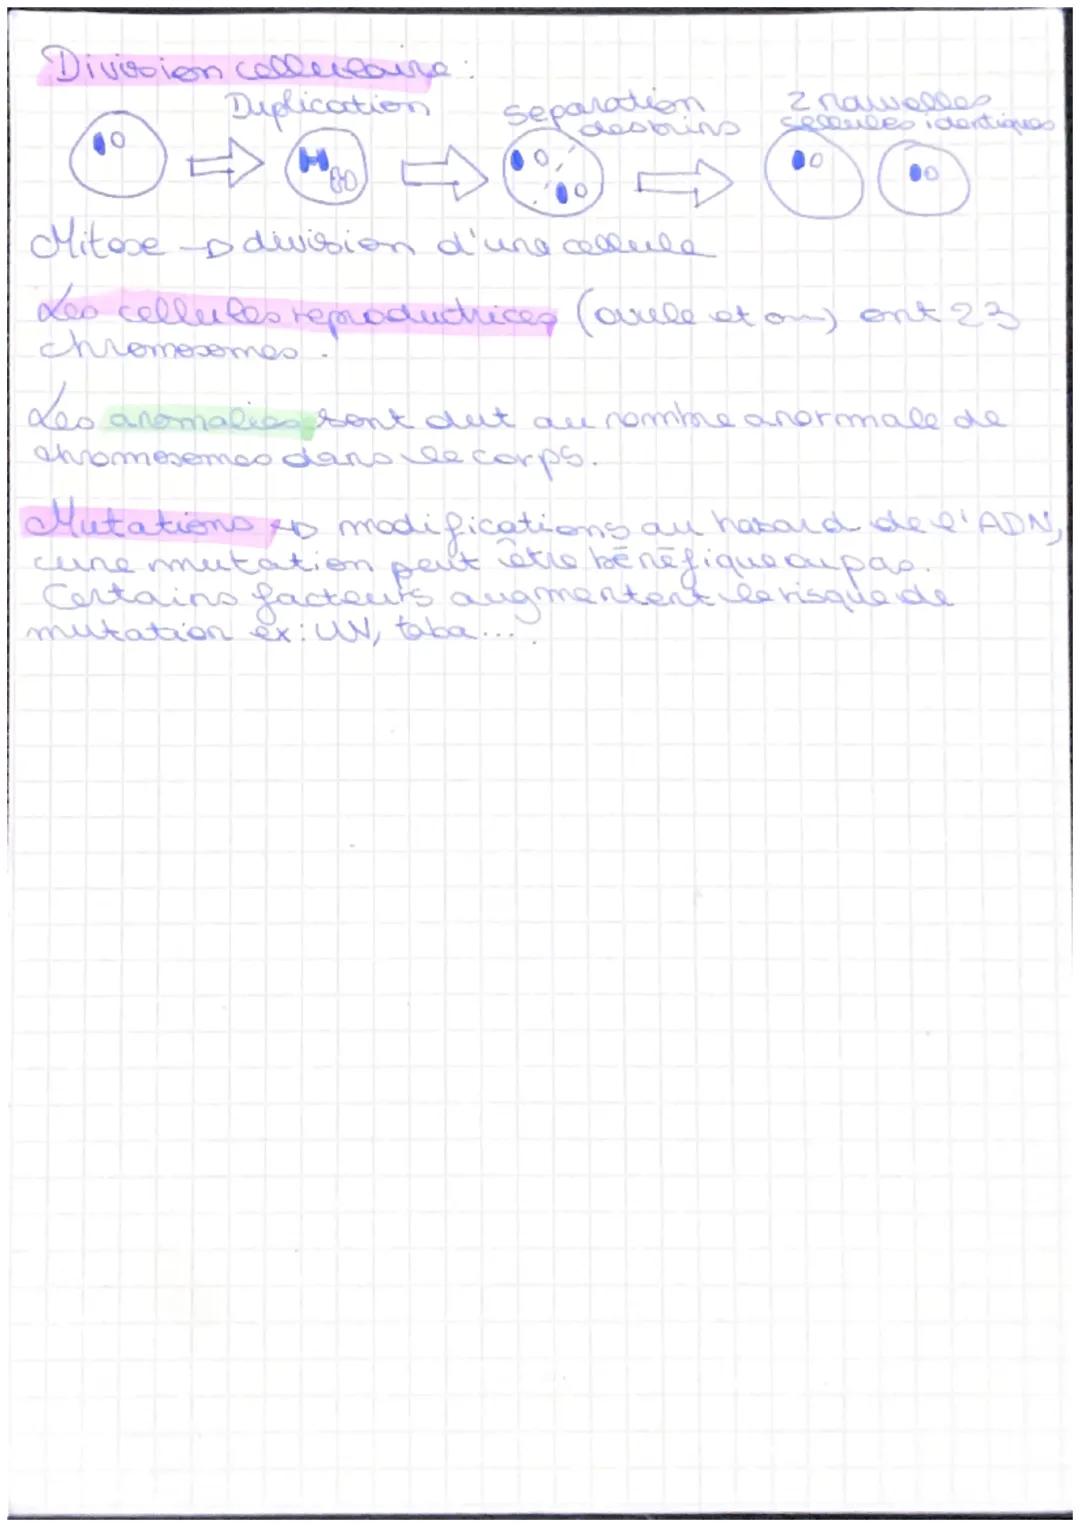 Division cellulaire :
Duplication
séparation
des brins
2 nouvelles
cellules identiques
Mitose → division d'une cellule
Les cellules reproductrices (ovule et) ont 23
chromosomes.
Les anomalies sont dut au nombre anormale de
chromosomes dans le corps.
Mutations → modifications au hasard de l'ADN,
une mutation peut être bénéfique ou pas.
Certains facteurs augmentent le risque de
mutation ex: UV, taba....